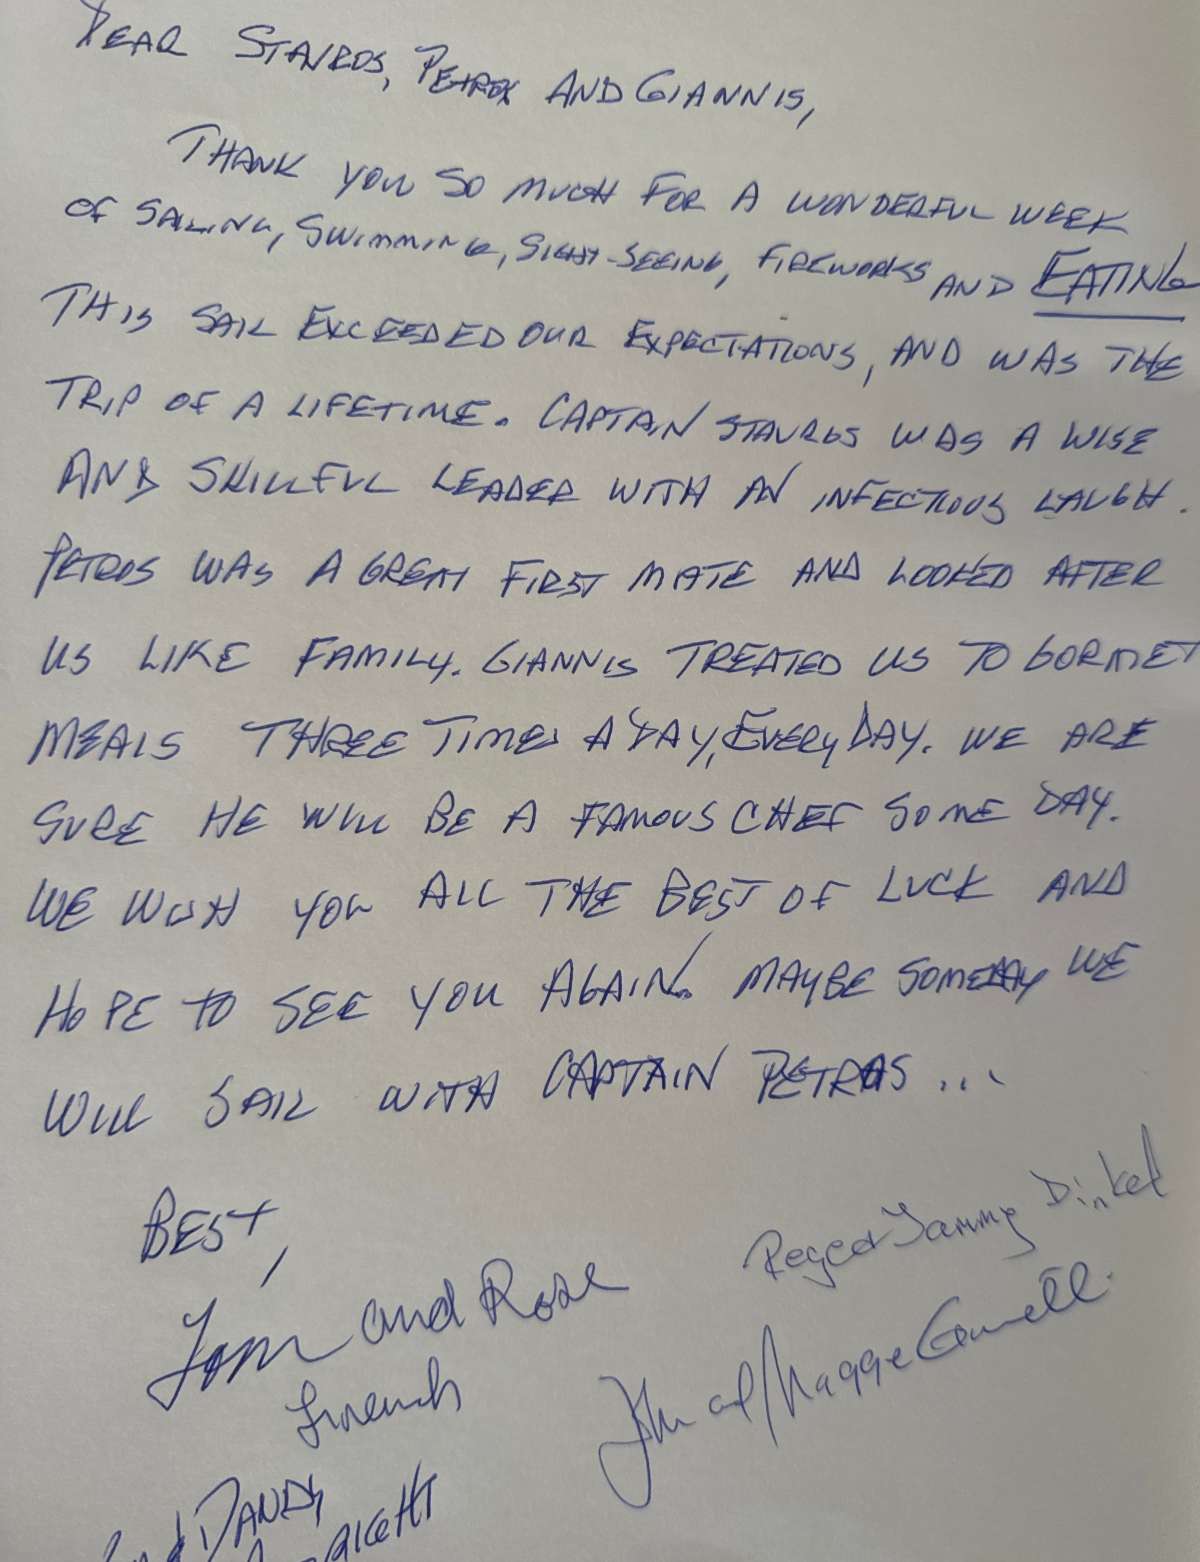 DEAR STAVROS, PETROS AND GIANNIS,
THANK YOU SO MUCH FOR A WONDERFUL WEEK
OF SAILING, SWIMMING, SIGHT-SEEING, FIREWORKS AND EATING
THIS SAIL EXCEEDED OUR EXPECTATIONS, AND WAS THE
TRIP OF A LIFETIME. CAPTAIN STAVROS WAS A WISE
AND SKILLFUL LEADER WITH AN INFECTIOUS LAUGH.
PETROS WAS A GREAT FIRST MATE AND LOOKED AFTER
US LIKE FAMILY. GIANNIS TREATED US TO GORMET
MEALS THREE TIMES A DAY, EVERY DAY. WE ARE
SURE HE WILL BE A FAMOUS CHEF SOME DAY.
WE WISH YOU ALL THE BEST OF LUCK AND
HOPE TO SEE YOU AGAIN. MAYBE SOMEDAY WE
WILL SAIL WITH CAPTAIN PETRAS ...
BEST,
Tom and Rose
Tammy Dinkel
John and Maggie